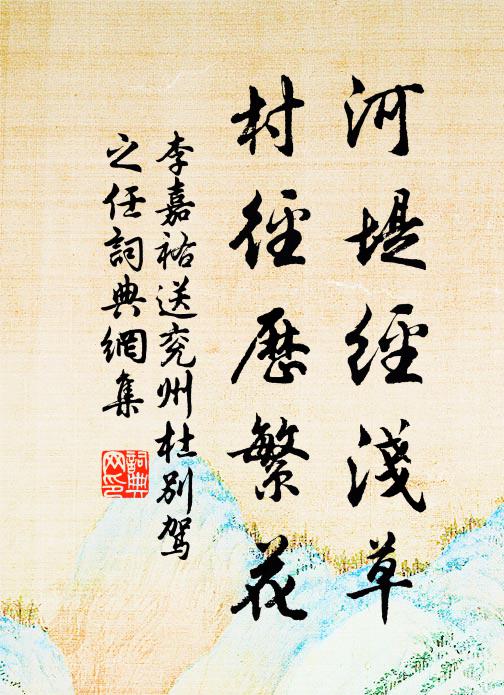 河堤經淺草
村徑歷繁花
李嘉祐送兖州杜別駕
之任詞典網集
詞典
网印